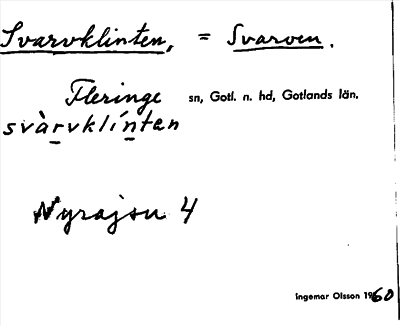 Svarvklinten, = Svarven.
Fleringe sn, Gotl. n. hd, Gotlands län.
svàrvklínten
Nyrajsu 4
Ingemar Olsson 1960